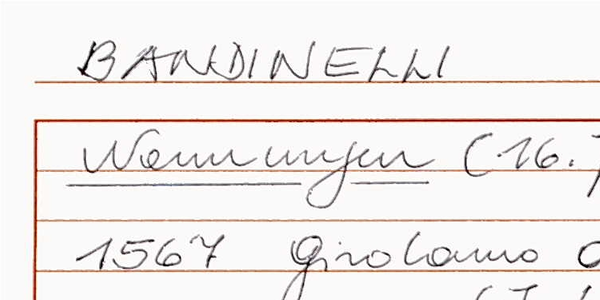 BANDINELLI
Nennungen (16.
1567 Girolamo